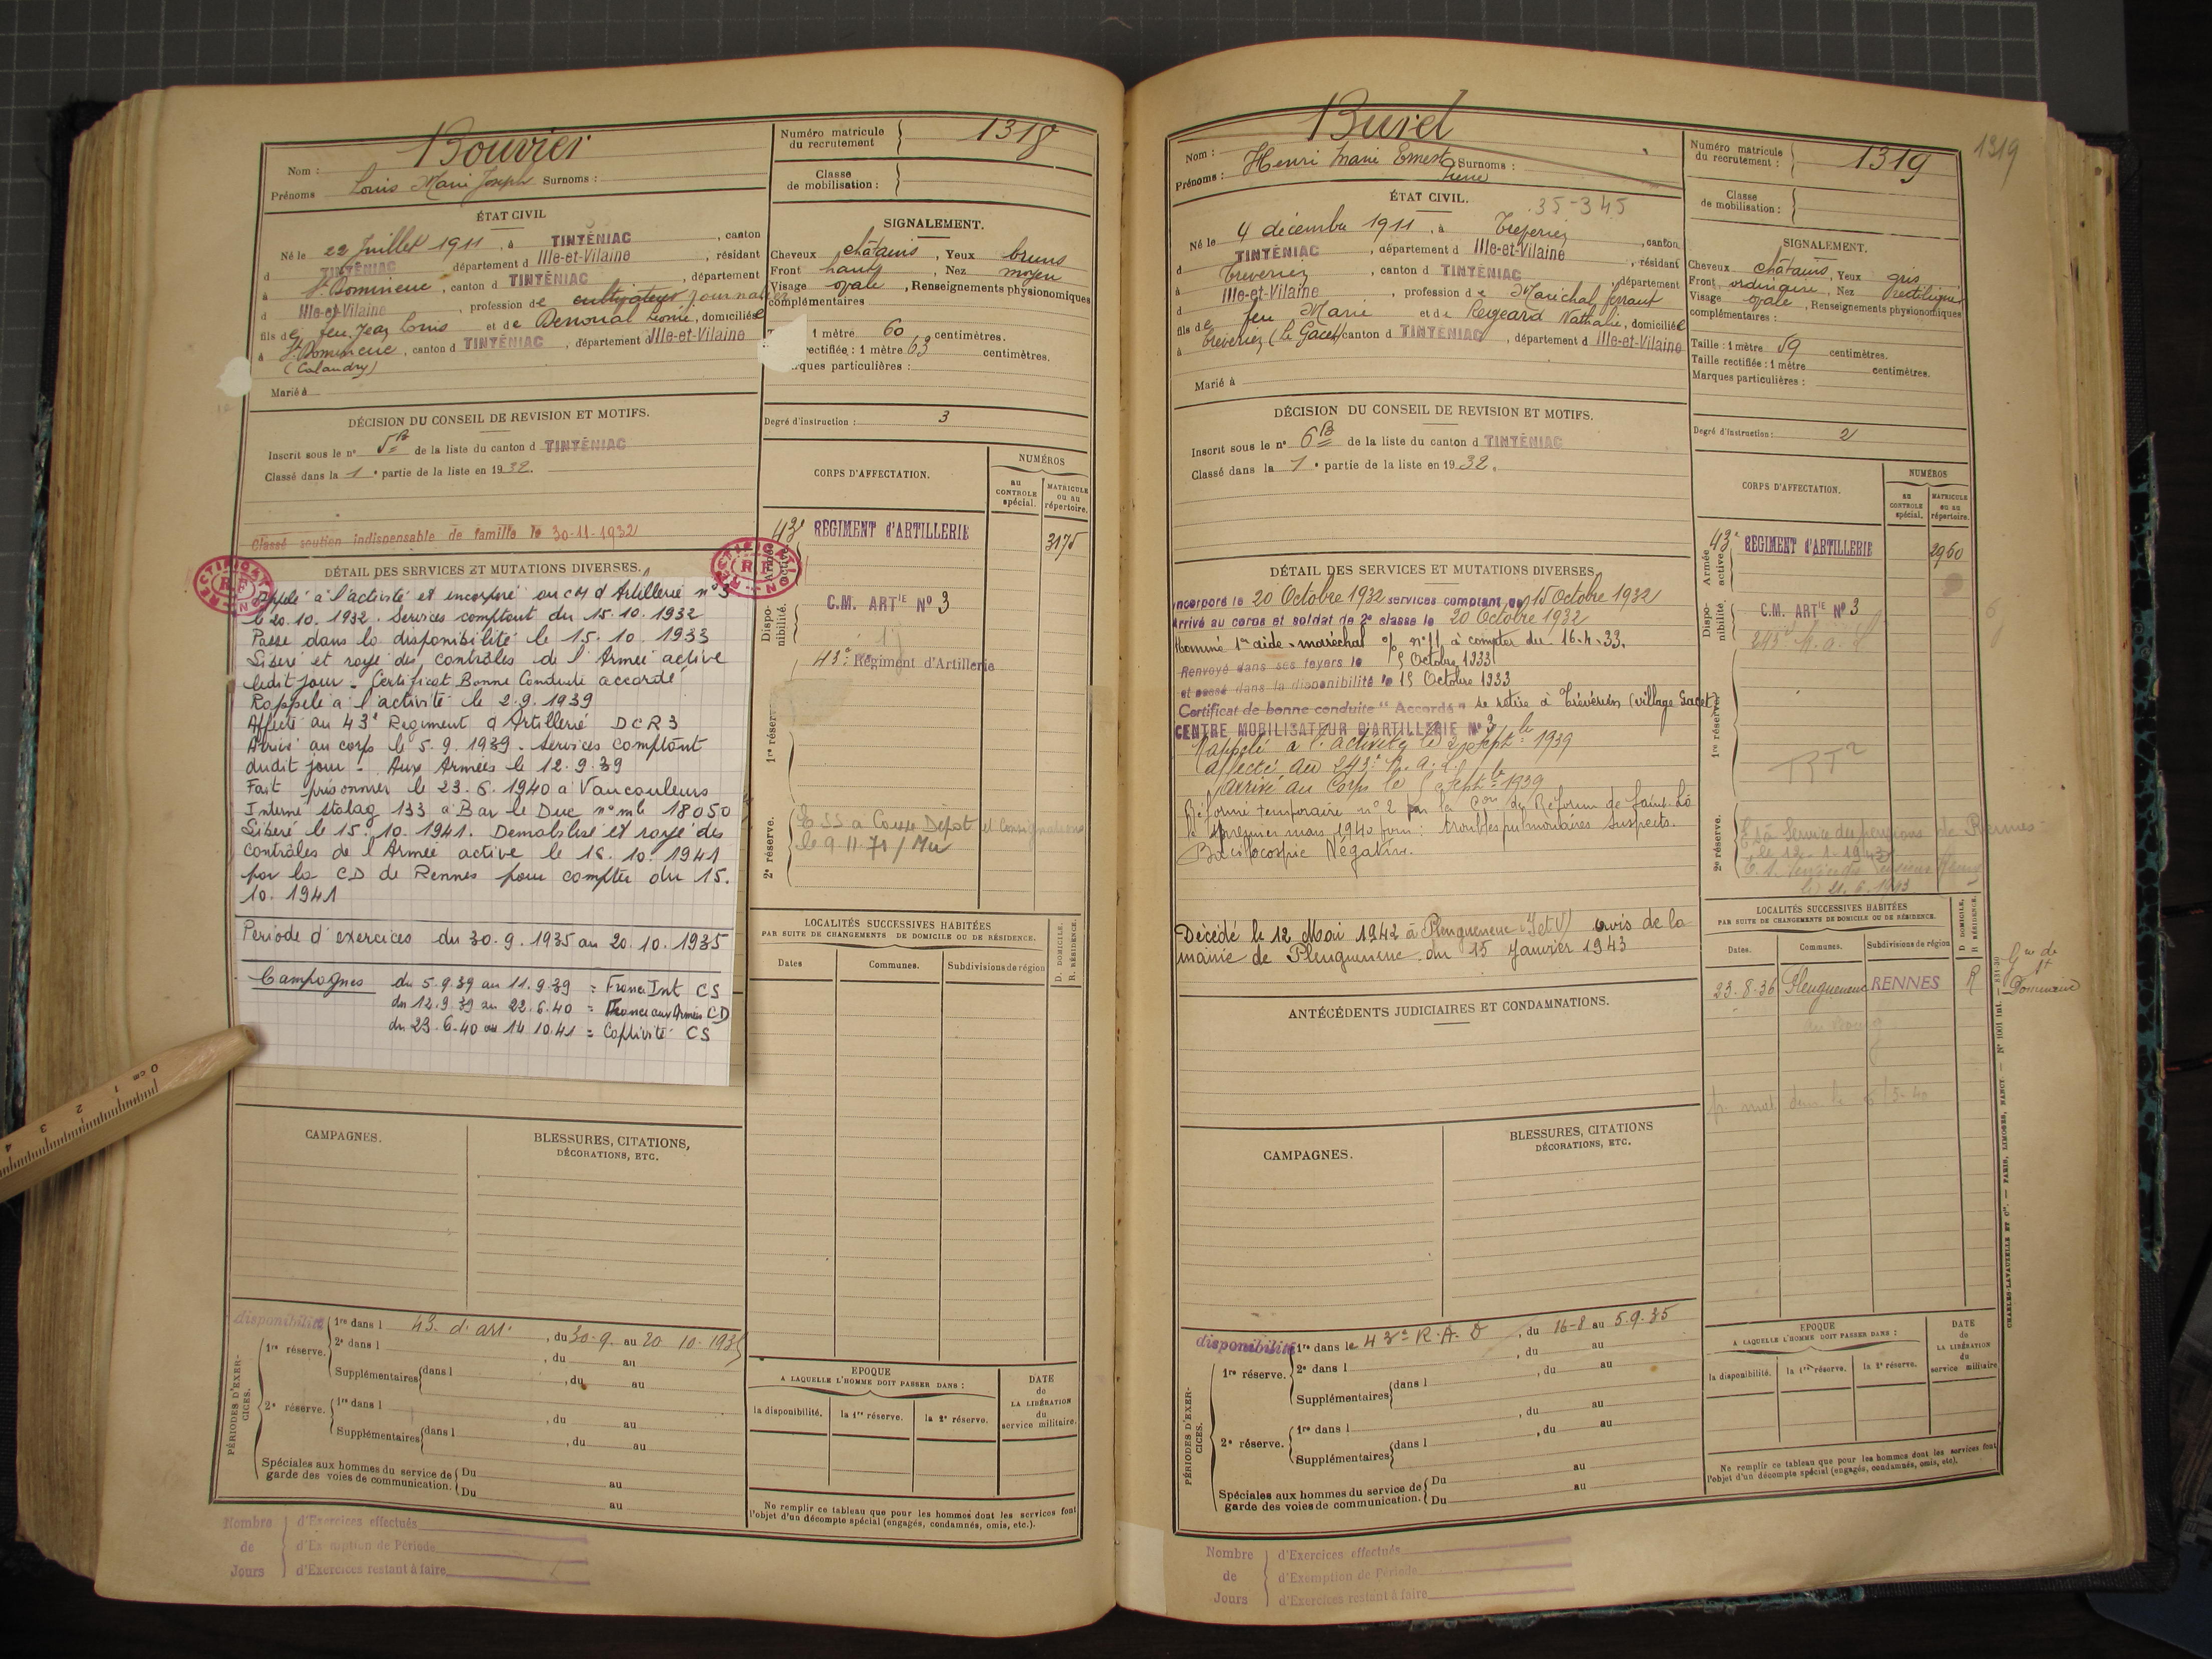 Bouvier
Nom :
Prénoms Louis Marie Joseph Surnoms :
Numéro matricule du recrutement 1318
Classe de mobilisation :
ÉTAT CIVIL
Né le 22 Juillet 1911, à TINTÉNIAC, canton
d TINTÉNIAC département d Ille-et-Vilaine, résidant
à St Domineuc, canton d TINTÉNIAC, département
d Ille-et-Vilaine, profession de cultivateur journalier
fils de feu Jean Louis et de Denoual Léonie, domiciliés
à St Domineuc, canton d TINTÉNIAC, département d Ille-et-Vilaine
(Calandry)
Marié à
SIGNALEMENT.
Cheveux châtains, Yeux bruns
Front haut, Nez moyen
Visage ovale, Renseignements physionomiques
complémentaires
1 mètre 60 centimètres.
rectifiée : 1 mètre 63 centimètres.
rques particulières :
Degré d'instruction : 3
DÉCISION DU CONSEIL DE REVISION ET MOTIFS.
Inscrit sous le n° 5 B de la liste du canton d TINTÉNIAC
Classé dans la 1e partie de la liste en 1932.
Classé soutien indispensable de famille le 30-11-1932
CORPS D'AFFECTATION.
NUMÉROS
au CONTROLE spécial.
MATRICULE ou au répertoire.
43e RÉGIMENT d'ARTILLERIE 3175
Dispo-nibilité.
C.M. ARTIE N° 3
43e Régiment d'Artillerie
1re réserve
2e réserve.
le 9.11.71 / Mu
RECTIFICATION
RF
RECTIFICATION
RF
DÉTAIL DES SERVICES ET MUTATIONS DIVERSES.
Appelé à l'activité et incorporé au CM d'Artillerie n° 3
le 20.10.1932. Services comptant du 15.10.1932
Passé dans la disponibilité le 15.10.1933
Libéré et rayé des contrôles de l'Armée active
ledit jour - Certificat Bonne Conduite accordé
Rappelé à l'activité le 2.9.1939
Affecté au 43e Régiment d'Artillerie DCR3
Arrivé au corps le 5.9.1939 - Services comptant
dudit jour - Aux Armées le 12.9.39
Fait prisonnier le 23.6.1940 à Vaucouleurs
Interné stalag 133 à Bar le Duc n° mle 18050
Libéré le 15.10.1941. Démobilisé et rayé des
contrôles de l'Armée active le 16.10.1941
par la CD de Rennes pour compter du 15.
10.1941
Période d'exercices du 30.9.1935 au 20.10.1935
Campagnes du 5.9.39 au 11.9.39 = France Int CS
du 12.9.39 au 22.6.40 = France aux Armées CD
du 23.6.40 au 14.10.41 = Captivité CS
LOCALITÉS SUCCESSIVES HABITÉES
PAR SUITE DE CHANGEMENTS DE DOMICILE OU DE RÉSIDENCE.
D. DOMICILE, R. RÉSIDENCE.
Dates Communes. Subdivisions de région
CAMPAGNES.
BLESSURES, CITATIONS, DÉCORATIONS, ETC.
PÉRIODES D'EXER-CICES.
disponibilité
1re dans l 43. d'art, du 30-9- au 20 10-1935
1re réserve. 2e dans l , du au
Supplémentaires dans l , du au
2e réserve. 1re dans l , du au
Supplémentaires dans l , du au
Spéciales aux hommes du service de garde des voies de communication. Du au
Du au
EPOQUE
A LAQUELLE L'HOMME DOIT PASSER DANS :
la disponibilité. la 1re réserve. la 2e réserve.
DATE de LA LIBÉRATION du service militaire.
Ne remplir ce tableau que pour les hommes dont les services font
l'objet d'un décompte spécial (engagés, condamnés, omis, etc.).
Nombre de Jours
d'Exercices effectués
d'Exemption de Période
d'Exercices restant à faire
Burel
Nom :
Prénoms : Henri Marie Ernest Surnoms :
Pierre
Numéro matricule du recrutement : 1319
1319
Classe de mobilisation :
ÉTAT CIVIL.
35-345
Né le 4 décembre 1911, à Treveriez, canton
d TINTÉNIAC, département d Ille-et-Vilaine, résidant
à Treveriez, canton d TINTÉNIAC, département
d Ille-et-Vilaine, profession de Maréchal ferrant
fils de feu Marie et de Regeard Nathalie, domiciliés
à Treveriez (Le Gacet) canton d TINTÉNIAC, département d Ille-et-Vilaine
Marié à
SIGNALEMENT.
Cheveux châtains, Yeux gris
Front ordinaire, Nez rectiligne
Visage ovale, Renseignements physionomiques
complémentaires :
Taille : 1 mètre 59 centimètres.
Taille rectifiée : 1 mètre centimètres.
Marques particulières :
Degré d'instruction : 2
DÉCISION DU CONSEIL DE REVISION ET MOTIFS.
Inscrit sous le n° 6 B de la liste du canton d TINTÉNIAC
Classé dans la 1e partie de la liste en 1932.
CORPS D'AFFECTATION.
NUMÉROS
au CONTROLE spécial.
MATRICULE ou au répertoire.
Armée active.
43e RÉGIMENT d'ARTILLERIE 2960
Dispo-nibilité.
C.M. ARTIE N° 3
1re réserve
RT2
2e réserve.
Service des pensions de Rennes
le 12-1-1943
le 21.6.1943
DÉTAIL DES SERVICES ET MUTATIONS DIVERSES.
Incorporé le 20 Octobre 1932 services comptant du 15 Octobre 1932
Arrivé au corps et soldat de 2e classe le 20 Octobre 1932
Nommé 1er aide-maréchal % n° 11 à compter du 16-4-33.
Renvoyé dans ses foyers le Octobre 1933
et passé dans la disponibilité le 15 Octobre 1933
Certificat de bonne conduite "Accordé" se retire à Trévérien (village Gacet)
CENTRE MOBILISATEUR D'ARTILLERIE N° 3
Rappelé à l'activité le 2 Septbre 1939
affecté au 243e R.A.L.
arrivé au corps le Septbre 1939
Réformé temporaire n° 2 par la Con de Réforme de Saint-Lô
le premier mars 1940 pour : troubles pulmonaires suspects.
Bacilloscopie Négative.
Décédé le 12 Mai 1942 à Pleugueneuc (I et V) avis de la
mairie de Pleugueneuc du 15 Janvier 1943
ANTÉCÉDENTS JUDICIAIRES ET CONDAMNATIONS.
LOCALITÉS SUCCESSIVES HABITÉES
PAR SUITE DE CHANGEMENTS DE DOMICILE OU DE RÉSIDENCE.
D. DOMICILE, R. RÉSIDENCE.
Dates. Communes. Subdivisions de région
23-8-36 Pleugueneuc RENNES R
CAMPAGNES.
BLESSURES, CITATIONS DÉCORATIONS, ETC.
PÉRIODES D'EXER-CICES.
disponibilité
1re dans le 43e R.A.D, du 16-8 au 5-9-35
1re réserve. 2e dans l , du au
Supplémentaires dans l , du au
2e réserve. 1re dans l , du au
Supplémentaires dans l , du au
Spéciales aux hommes du service de garde des voies de communication. Du au
Du au
EPOQUE
A LAQUELLE L'HOMME DOIT PASSER DANS :
la disponibilité. la 1re réserve. la 2e réserve.
DATE de LA LIBÉRATION du service militaire
Ne remplir ce tableau que pour les hommes dont les services font
l'objet d'un décompte spécial (engagés, condamnés, omis, etc).
CHARLES-LAVAUZELLE ET Cie. — PARIS, LIMOGES, NANCY.
Nombre de Jours
d'Exercices effectués
d'Exemption de Période
d'Exercices restant à faire
0 cm 1 2 3 4